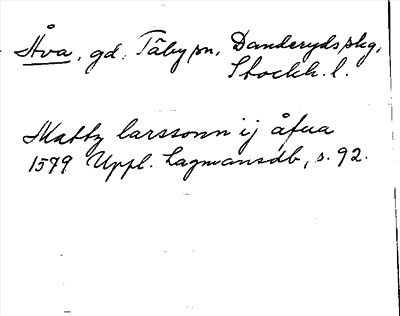 Åva, gd, Täby sn, Danderyds skg,
Stockh. l.
Mattz larssonn ij åfua
1579 Uppl. Lagmansdb, s. 92.